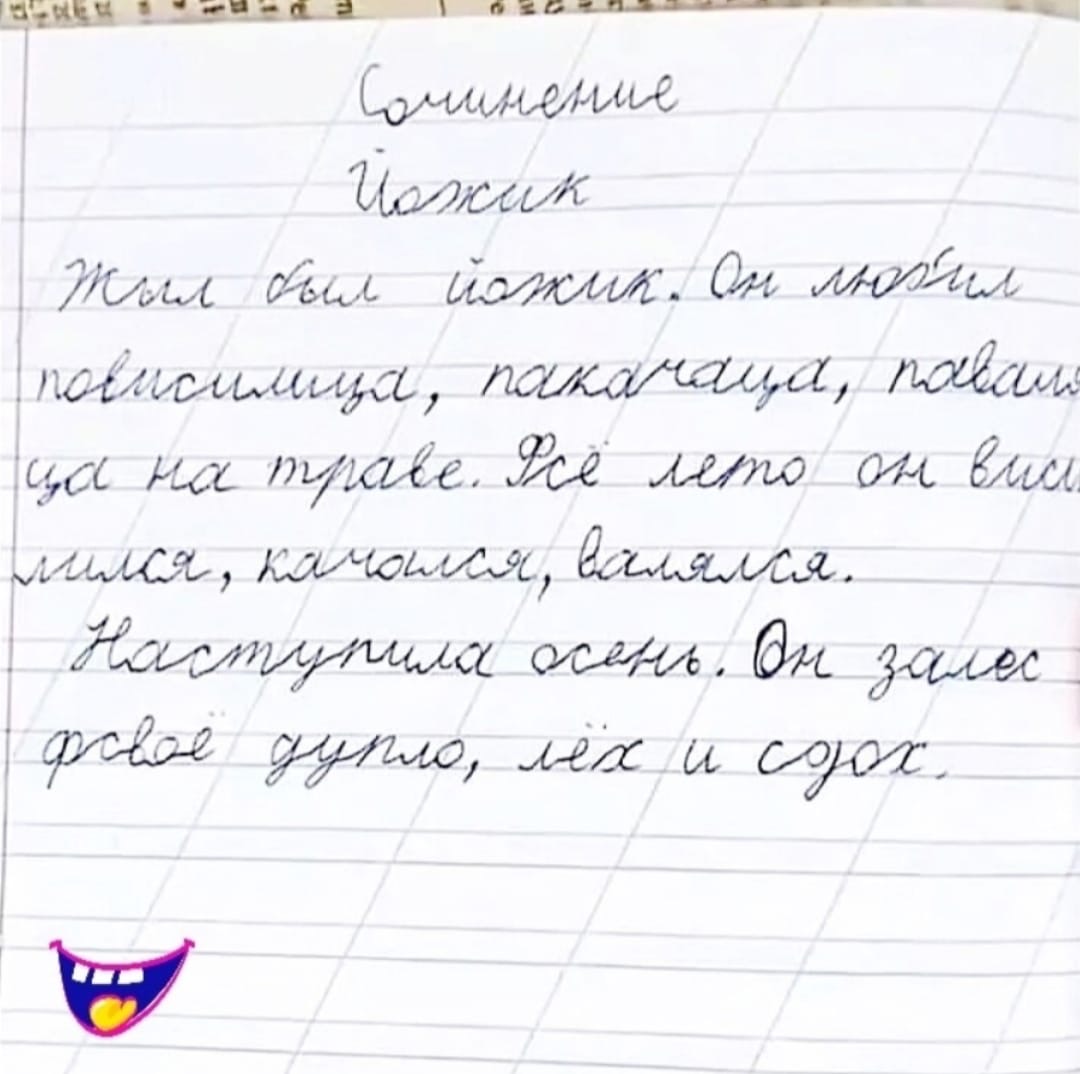 Сочинение
Йожик
Жыл был йожик. Он любил
повисилица, пакачаца, паваля
ца на траве. Фсё лето он виси
лился, качался, валялся.
Наступила осень. Он залес
фсвоё дупло, лёх и сдох.